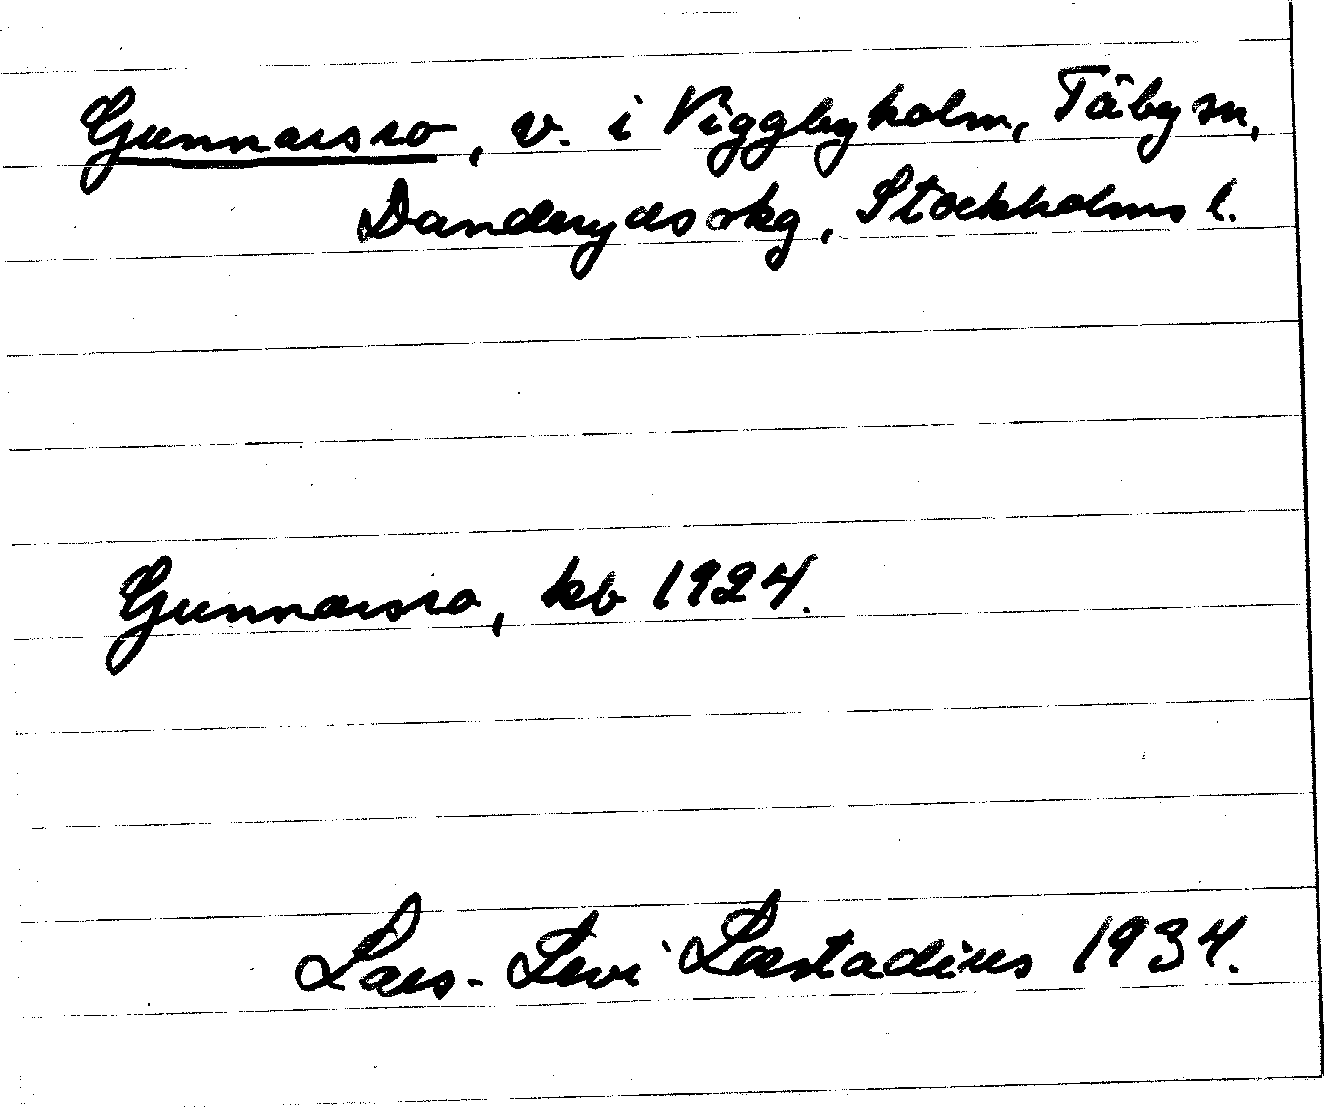 Gunnarsro, v. i Viggbyholm, Täby sn,
Danderyds skg, Stockholms l.
Gunnarsro, kb 1924.
Lars-Levi Læstadius 1934.